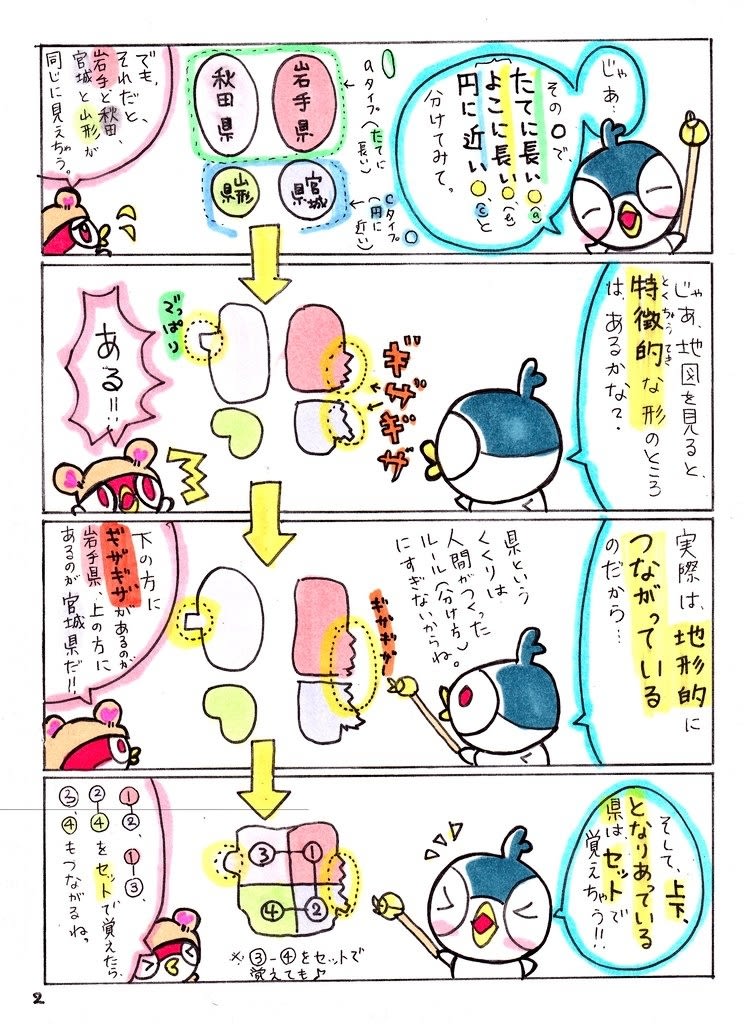 じゃあ…
その○で、
たてに長い(a)
よこに長い(b)、
円に近い(c)と
分けてみて。
aタイプ(たてに長い)
cタイプ(円に近い)
岩手県
秋田県
宮城県
山形県
でも、
それだと、
岩手と秋田、
宮城と山形が
同じに見えちゃう。
じゃあ、地図を見ると、
特徴的な形のところ
とくちょうてき
は、あるかな?
ギザギザ
でっぱり
ある!!
実際は、地形的に
つながっている
のだから…
県という
くくりは
人間がつくった
ルール(分け方)
にすぎないからね。
ギザギザ
下の方に
ギザギザがあるのが
岩手県、上の方に
あるのが宮城県だ!!
そして、上下、
となりあっている
県はセットで
覚えちゃう!!
③ ①
④ ②
※③-④をセットで
覚えても♪
①-②、①-③、
②-④をセットで覚えたら、
③、④もつながるね。
2